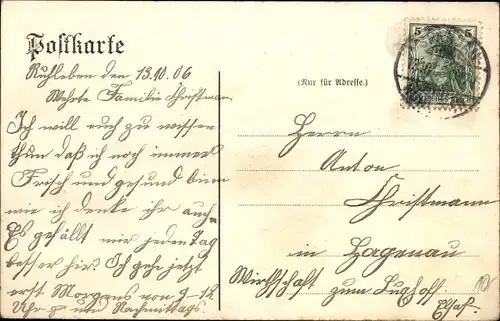 Postkarte
Ruhleben den 13.10.06
Wehrte Familie Christmann
Ich will euch zu wissen
thun daß ich noch immer
Frisch und gesund binn
wie ich denke ihr auch
Es gefällt mir jeden Tag
besser hir. Ich gehe jetzt
erst Morgens von 9-12
Uhr u. Nachmittags.
(Nur für Adresse.)
5 5
Herrn
Anton
Christmann
in Hagenau
Wirthschaft zum
Elsaß.
10